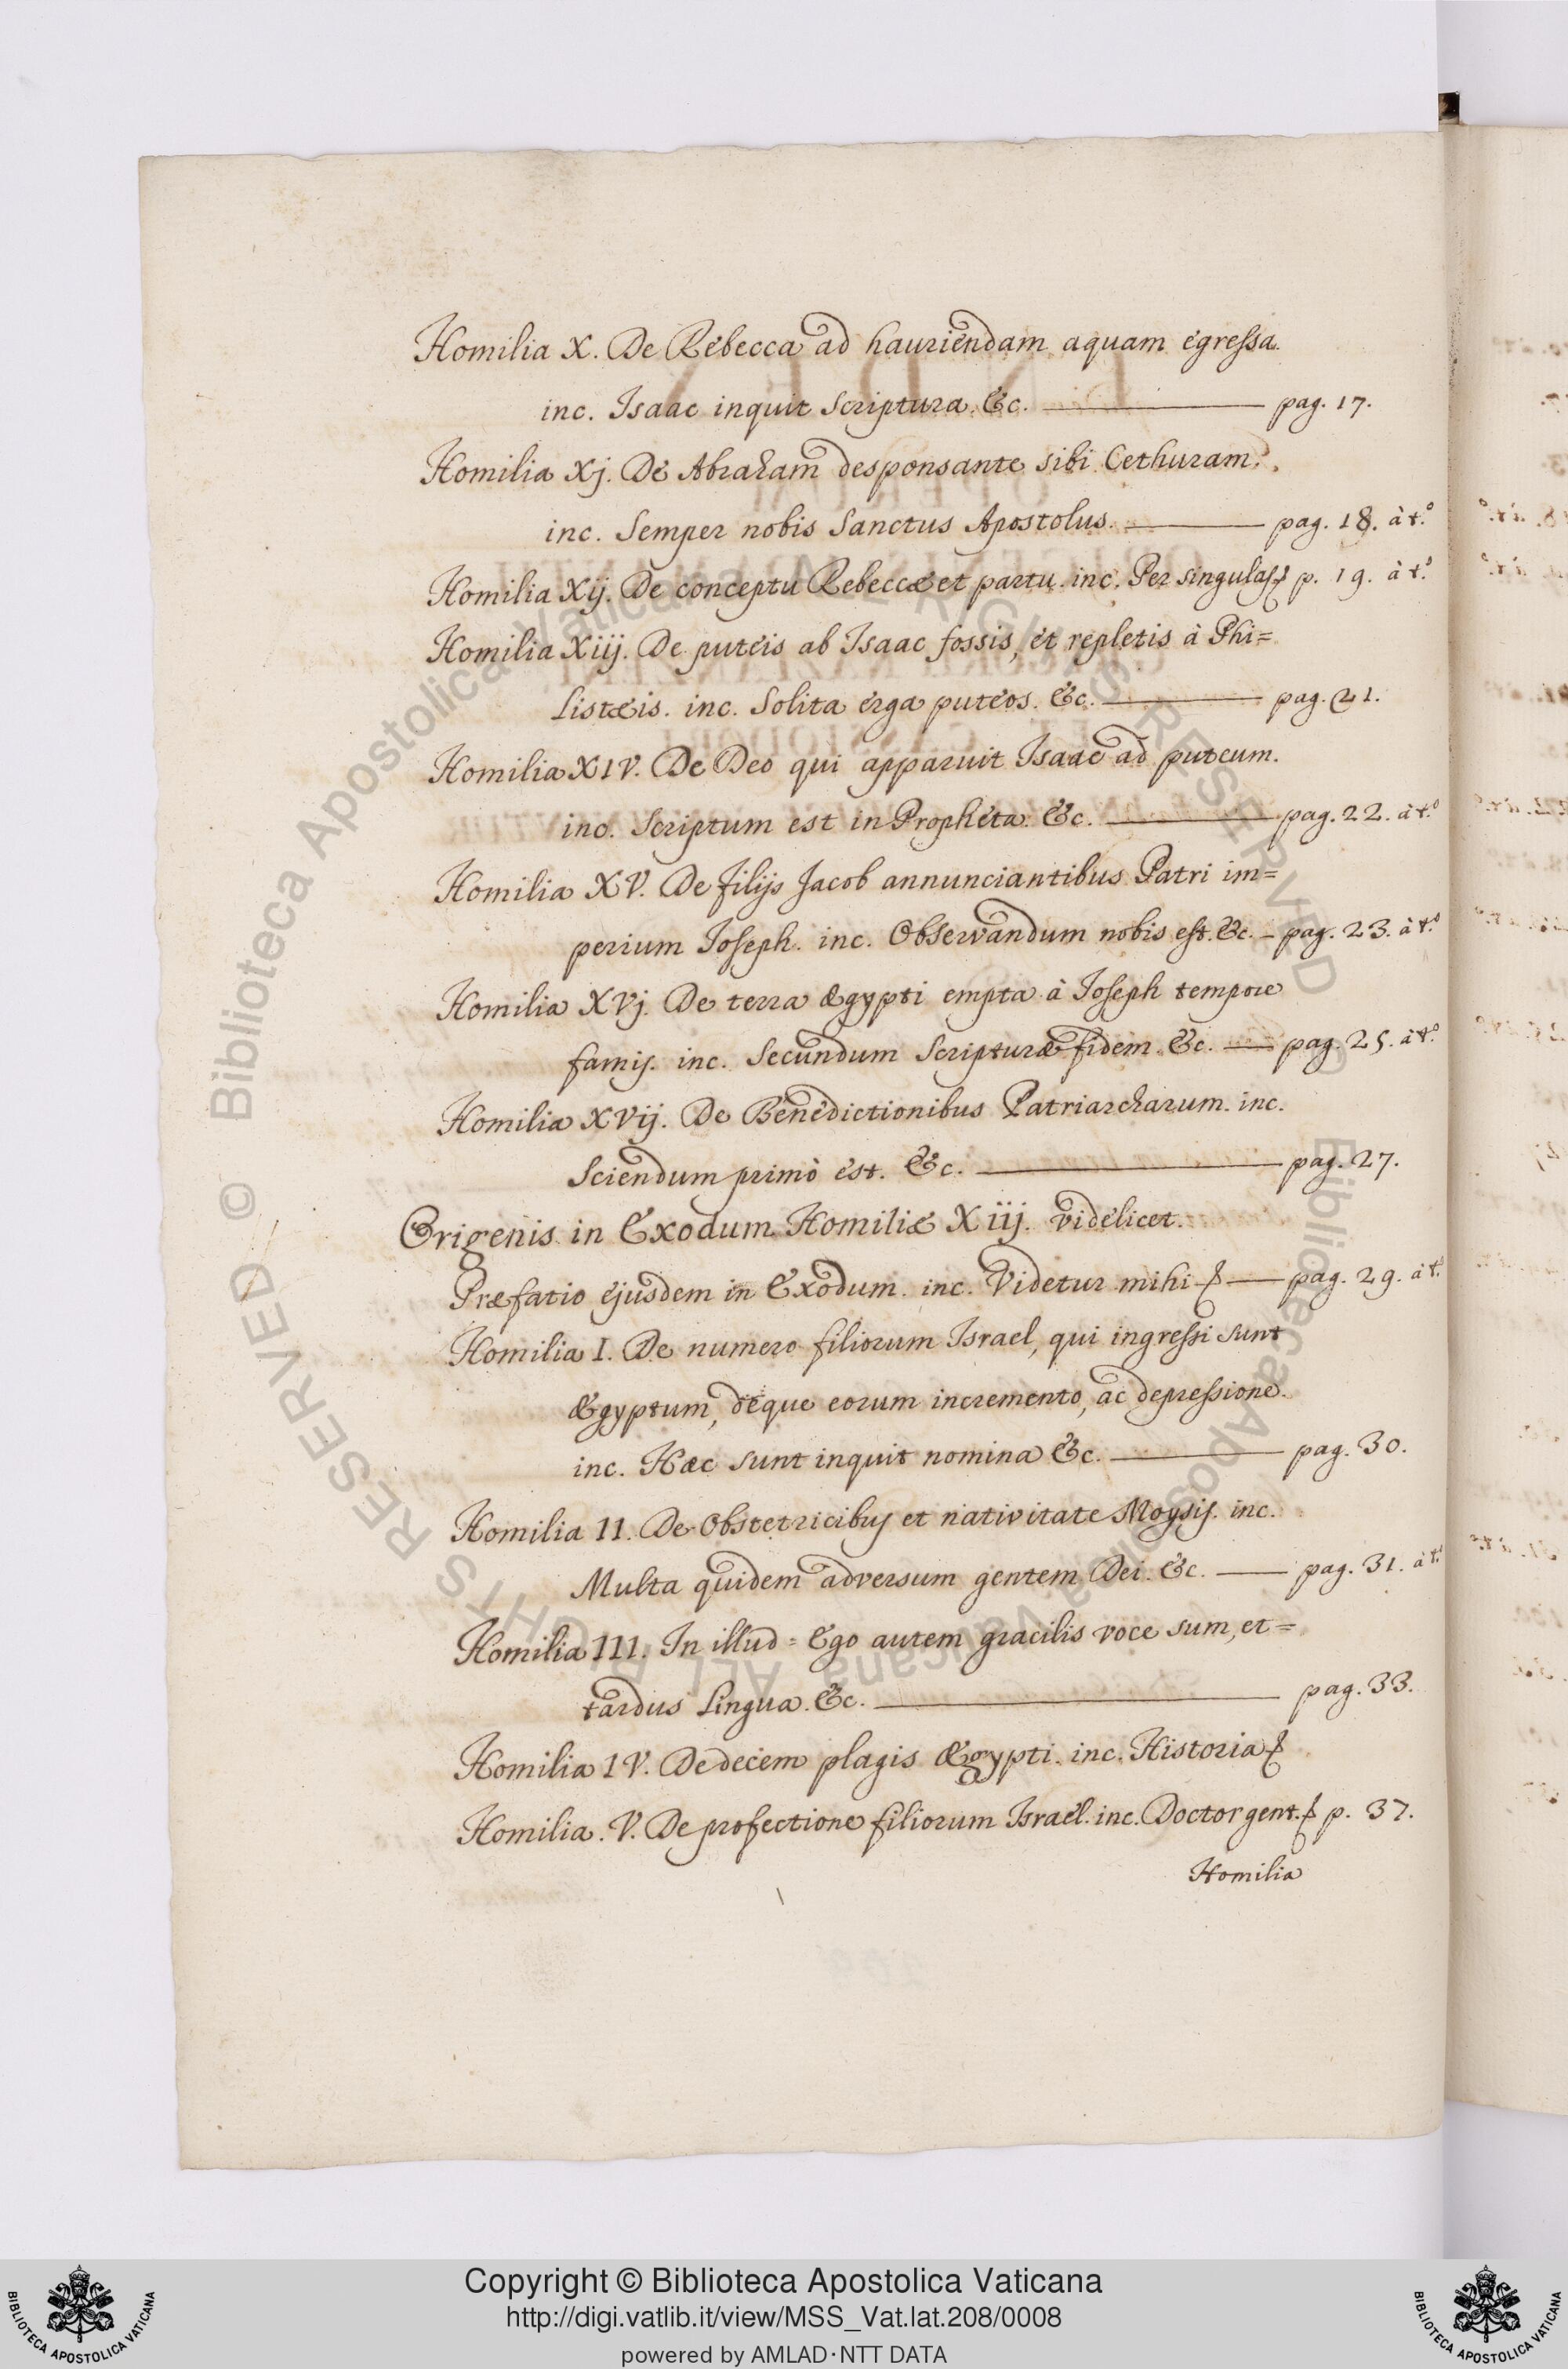 Homilia X. De Rebecca ad hauriendam aquam egressa.
inc. Isaac inquit Scriptura. &c. ——— pag. 17.
Homilia Xj. De Abraham desponsante sibi Cethuram.
inc. Semper nobis Sanctus Apostolus. ——— pag. 18. à t.º
Homilia Xij. De conceptu Rebeccæ et partu. inc. Per singulas p. 19. à t.º
Homilia Xiij. De puteis ab Isaac fossis, et repletis à Phi=
listæis. inc. Solita erga puteos. &c. ——— pag. 21.
Homilia XIV. De Deo qui apparuit Isaac ad puteum.
inc. Scriptum est in Propheta. &c. ——— pag. 22. à t.º
Homilia XV. De filijs Jacob annunciantibus Patri im=
perium Joseph. inc. Observandum nobis est. &c. — pag. 23. à t.º
Homilia XVj. De terra Ægypti empta à Joseph tempore
famis. inc. Secundum Scripturæ fidem. &c. — pag. 25. à t.º
Homilia XVij. De Benedictionibus Patriarcharum. inc.
Sciendum primò est. &c. ——— pag. 27.
Origenis in Exodum Homiliæ Xiij. videlicet.
Præfatio ejusdem in Exodum. inc. Videtur mihi — pag. 29. à t.º
Homilia I. De numero filiorum Israel, qui ingressi sunt
Ægyptum, deque eorum incremento, ac depressione.
inc. Hæc sunt inquit nomina &c. ——— pag. 30.
Homilia II. De Obstetricibus et nativitate Moysis. inc.
Multa quidem adversum gentem Dei. &c. — pag. 31. à t.º
Homilia III. In illud = Ego autem gracilis voce sum, et =
tardus Lingua. &c. ——— pag. 33.
Homilia IV. De decem plagis Ægypti. inc. Historia
Homilia. V. De profectione filiorum Israel. inc. Doctor gent. p. 37.
Homilia
© Biblioteca Apostolica Vaticana ALL RIGHTS RESERVED
Copyright © Biblioteca Apostolica Vaticana
http://digi.vatlib.it/view/MSS_Vat.lat.208/0008
powered by AMLAD·NTT DATA
BIBLIOTECA APOSTOLICA VATICANA
BIBLIOTECA APOSTOLICA VATICANA